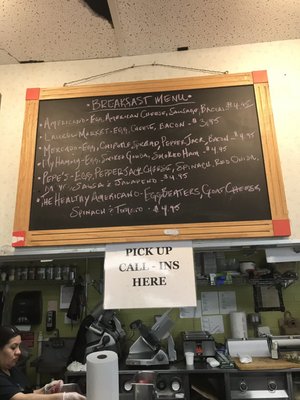 BREAKFAST MENU
• AMERICANO - EGG, AMERICAN CHEESE, SAUSAGE, BACON $4.95
• LAUREL MARKET - EGG, CHEESE, BACON - $3.95
• MERCADO - EGG, CHIPOTLE SPREAD, PEPPER JACK, BACON - $4.95
• FLY - EGG, SMOKED GOUDA, SMOKED HAM - $4.95
• PEPE'S - EGG, PEPPER JACK CHEESE, SPINACH, RED ONION,
SAUSAGE & JALAPEÑO $4.95
• THE HEALTHY AMERICANO - EGG BEATERS, GOAT CHEESE
SPINACH & TOMATO - $4.95
PICK UP
CALL - INS
HERE